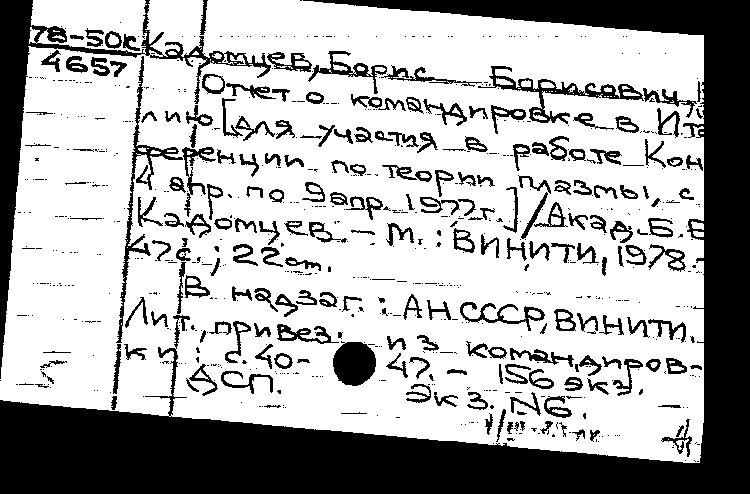 78-50к Кадомцев, Борис Борисович
4657
Отчет о командировке в Ита
лию [для участия в работе Кон
ференции по теории плазмы, с
4 апр. по 9 апр. 1977г.] / Акад. Б.Б
Кадомцев. - М. : ВИНИТИ, 1978.-
47с. ; 22 cm.
В надзаг. : АН СССР, ВИНИТИ.
Лит., привез. из командиров-
ки : с. 40-47. - 156 экз.
ДСП. Экз. N6.